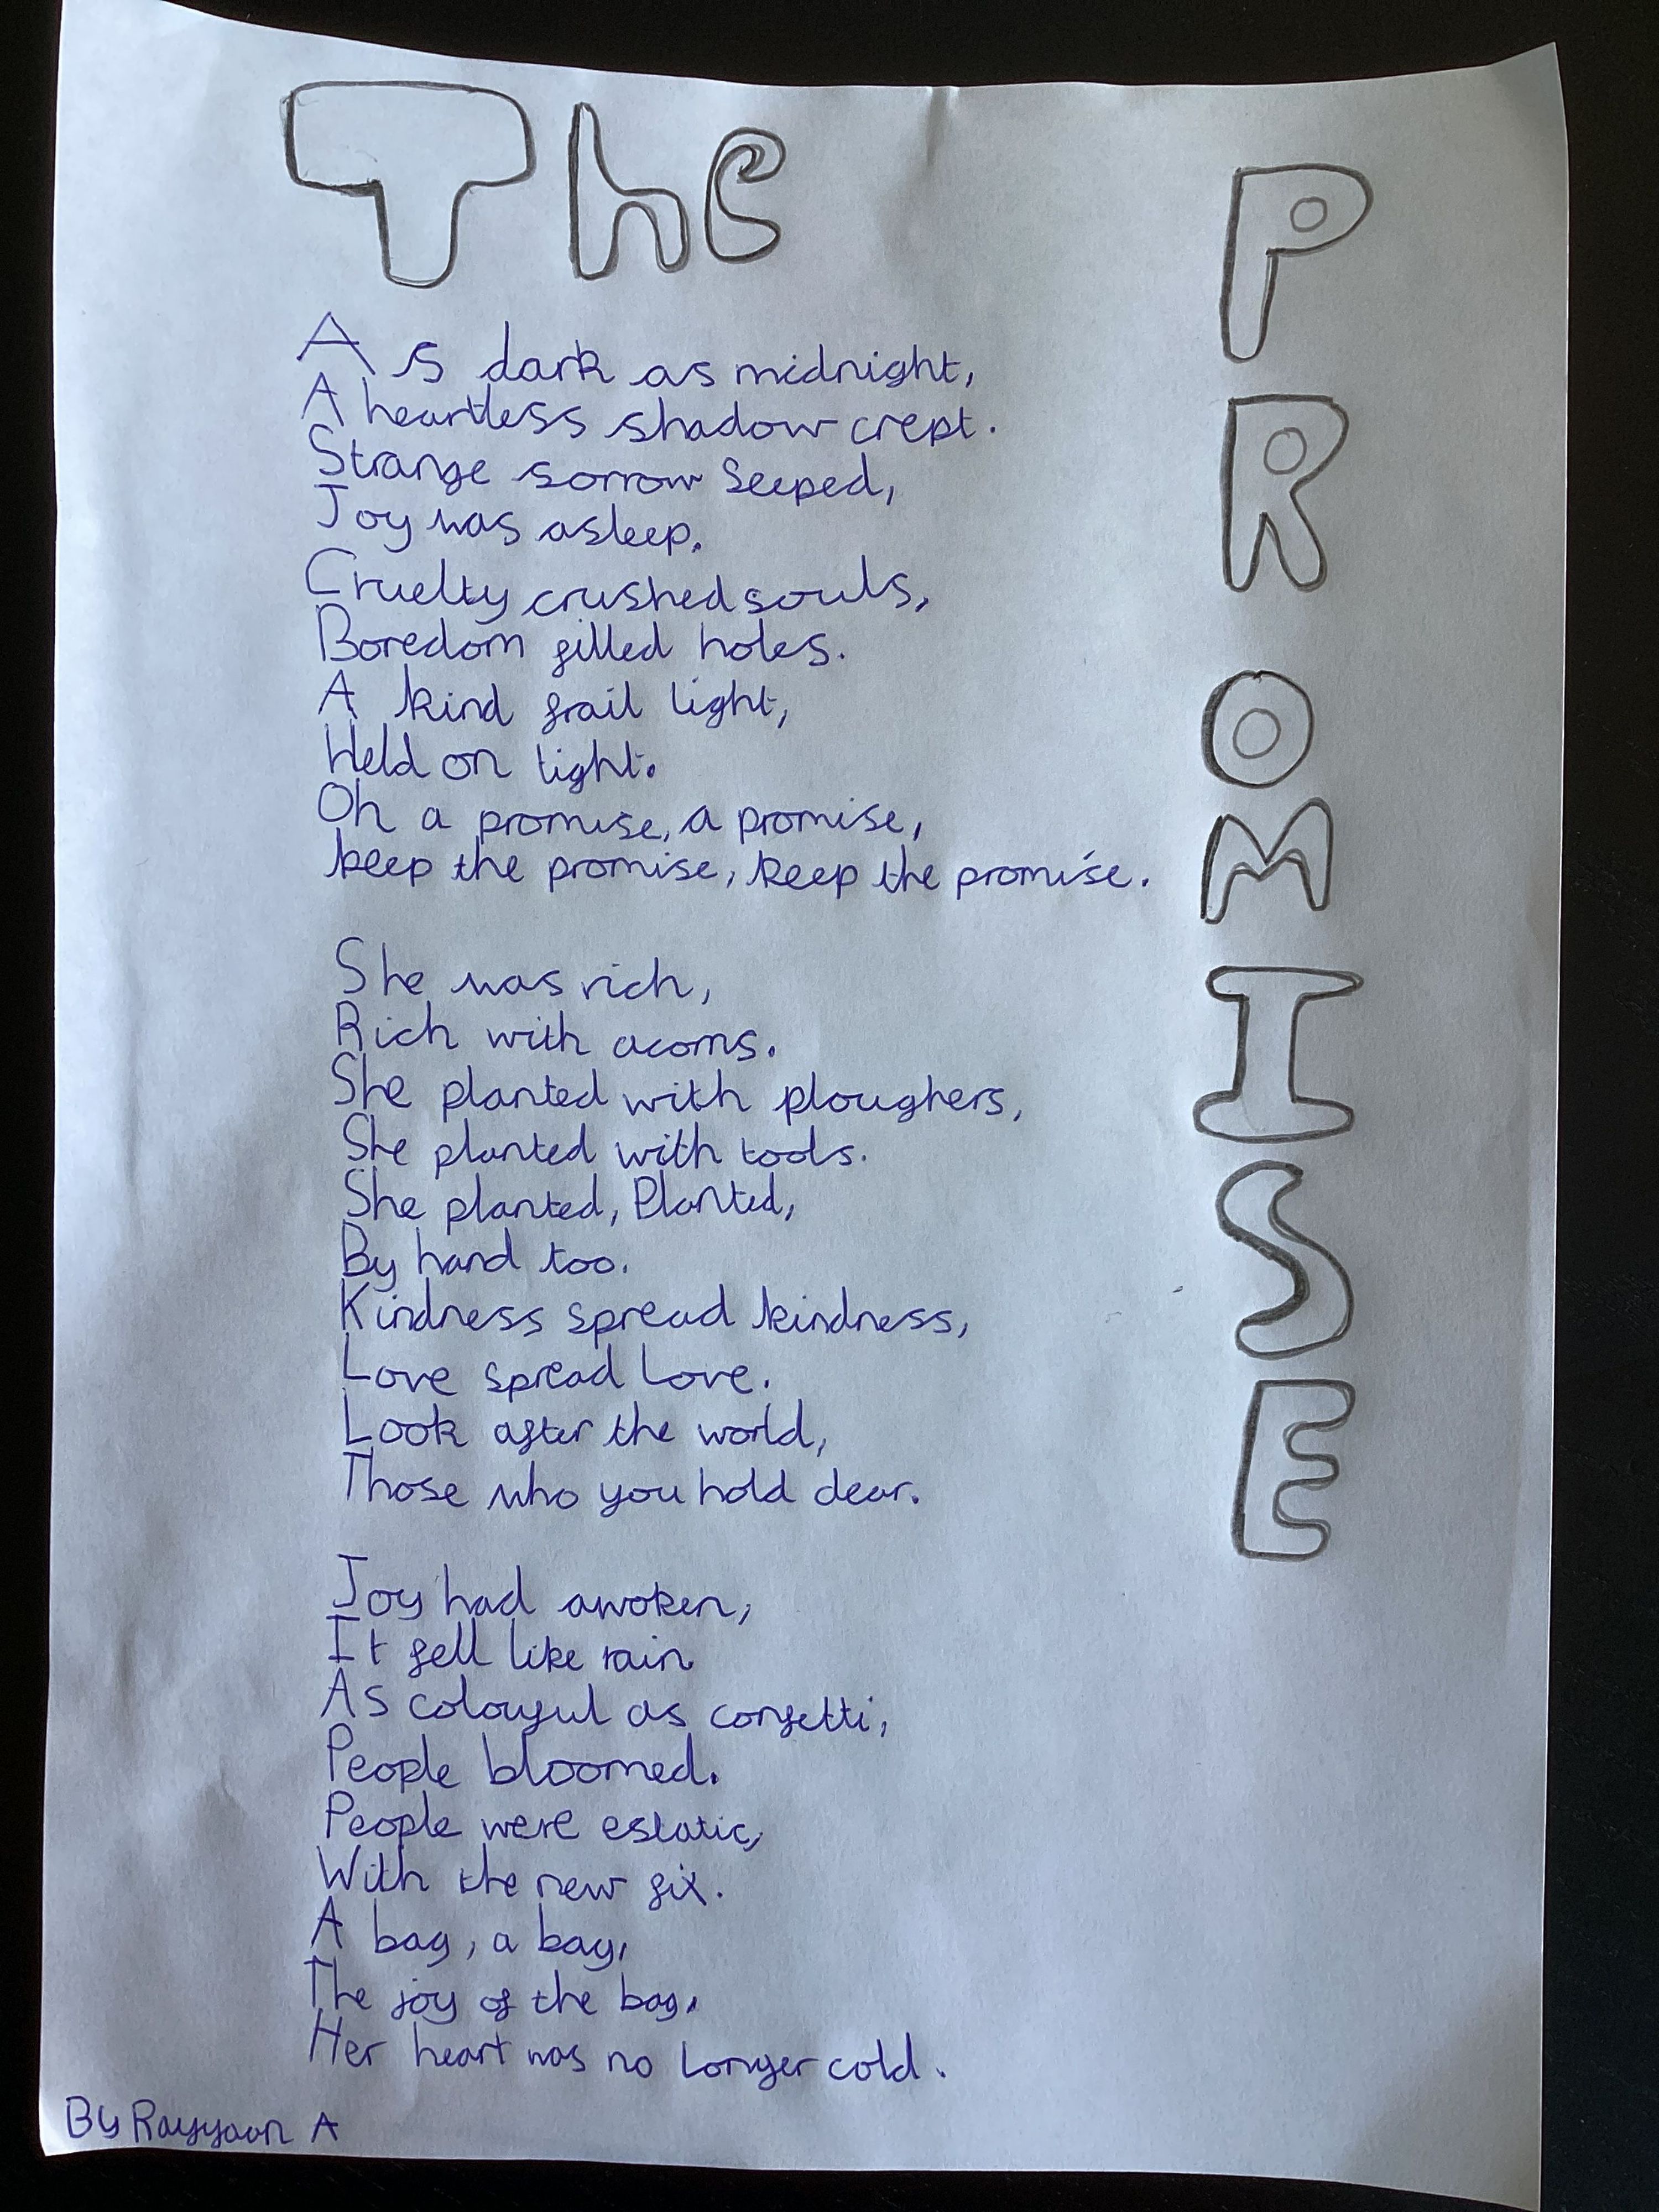 The
PROMISE
As dark as midnight,
A heartless shadow crept.
Strange sorrow seeped,
Joy was asleep.
Cruelty crushed souls,
Boredom filled holes.
A kind frail light,
Held on tight.
Oh a promise, a promise,
keep the promise, keep the promise.
She was rich,
Rich with acorns.
She planted with ploughers,
She planted with tools.
She planted, Planted,
By hand too.
Kindness spread kindness,
Love spread Love.
Look after the world,
Those who you hold dear.
Joy had awoken,
It fell like rain
As colouful as confetti,
People bloomed.
People were estatic,
With the new fix.
A bag, a bag,
The joy of the bag.
Her heart was no Longer cold.
By Rayyaan A